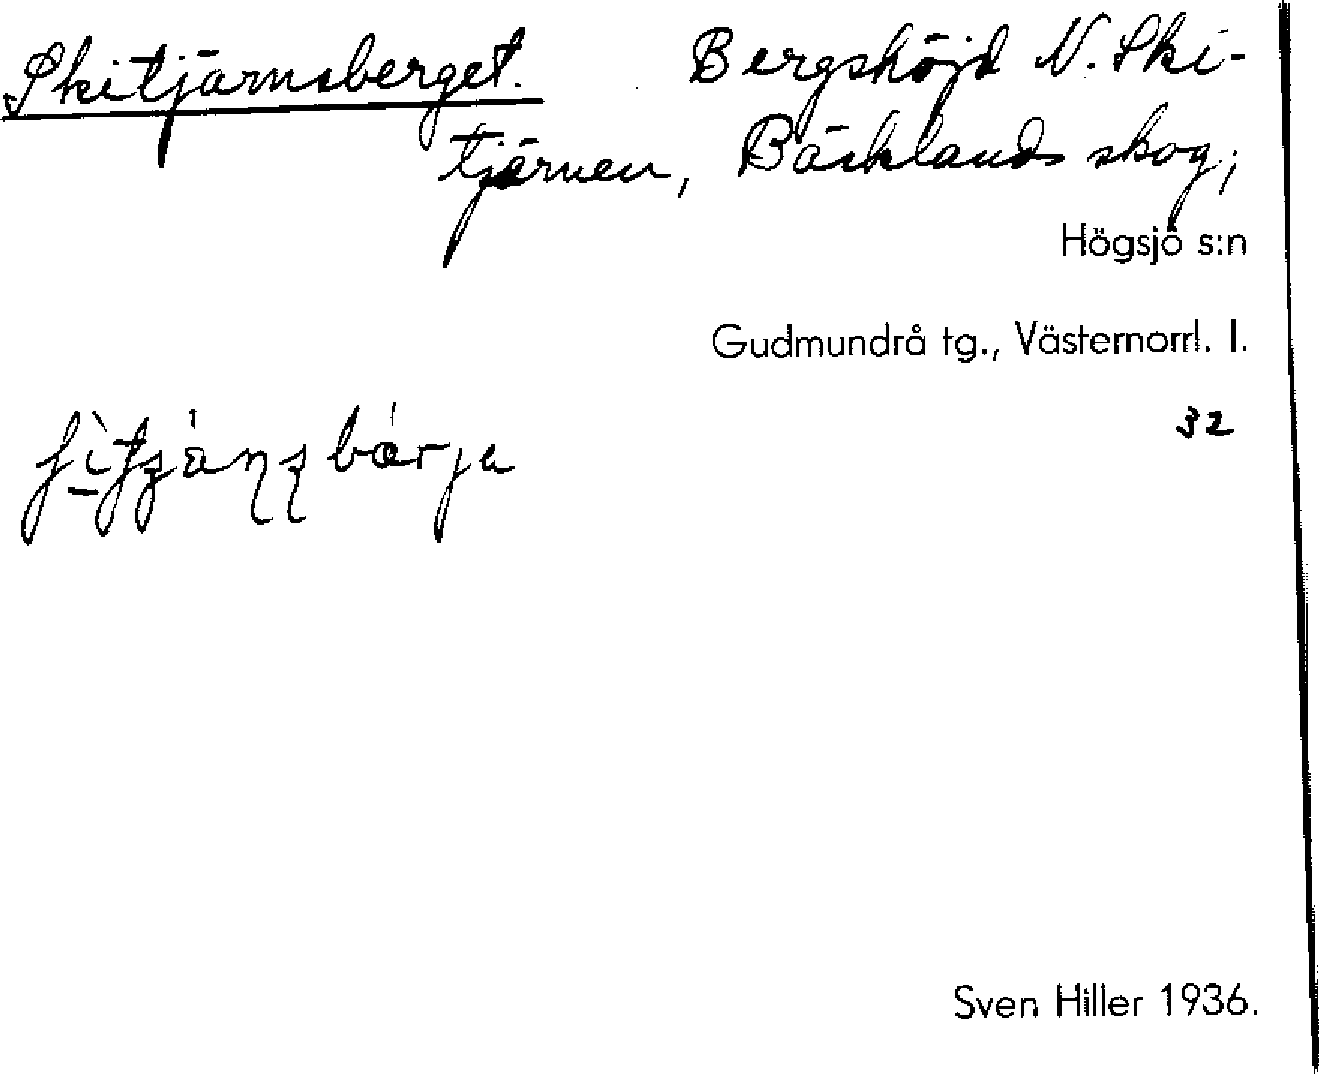 Skitjärnsberget. Bergshöjd N. Ski-
tjärnen, Bäcklands skog;
Högsjö s:n
Gudmundrå tg., Västernorrl. l.
32
Sven Hiller 1936.